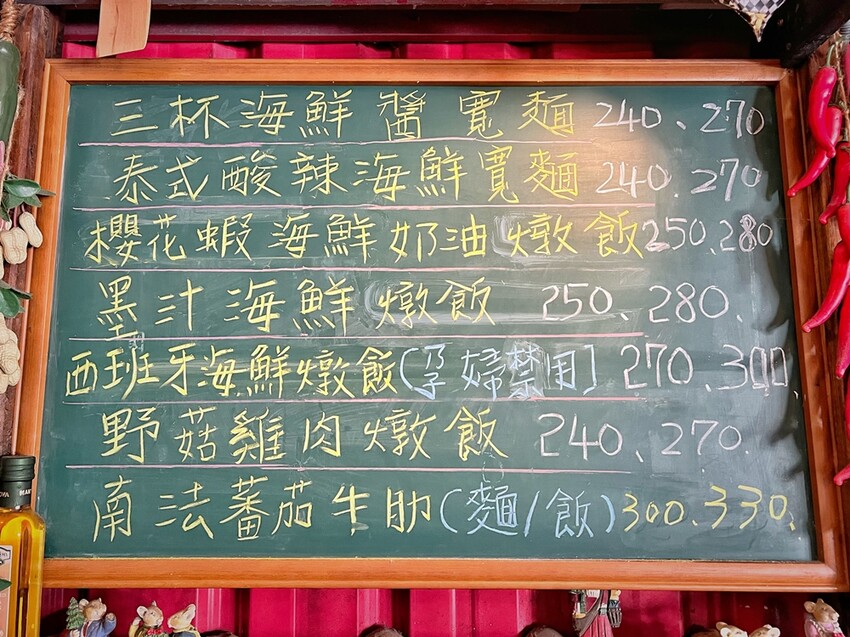 三杯海鮮醬寬麵 240、270
泰式酸辣海鮮寬麵 240、270
櫻花蝦海鮮奶油燉飯 250、280
墨汁海鮮燉飯 250、280.
西班牙海鮮燉飯(孕婦禁用) 270、300
野菇雞肉燉飯 240、270.
南法蕃茄牛肋(麵/飯) 300、330.